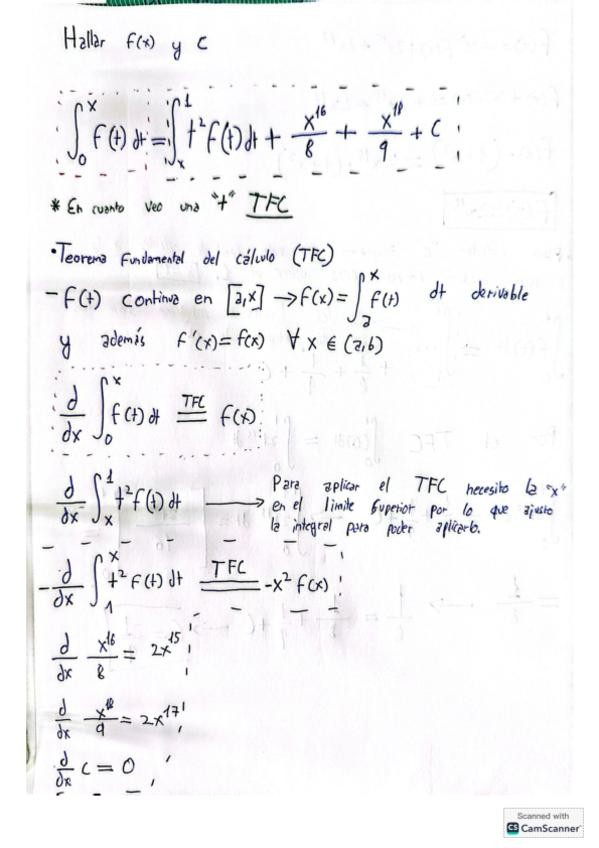 Hallar f(x) y C
∫₀ˣ f(t) dt = ∫ₓ¹ t² f(t) dt + x¹⁶/8 + x¹⁸/9 + C
* En cuanto veo una "t" TFC
• Teorema Fundamental del cálculo (TFC)
- F(t) continua en [a,x] → F(x) = ∫ₐˣ f(t) dt derivable
y además F'(x) = f(x) ∀ x ∈ (a,b)
d/dx ∫₀ˣ f(t) dt TFC = f(x)
d/dx ∫ₓ¹ t² f(t) dt → Para aplicar el TFC necesito la "x"
en el limite superior por lo que ajusto
la integral para poder aplicarlo.
- d/dx ∫₁ˣ t² f(t) dt TFC = -x² f(x)
d/dx x¹⁶/8 = 2x¹⁵
d/dx x¹⁸/9 = 2x¹⁷
d/dx C = 0
Scanned with
CS CamScanner